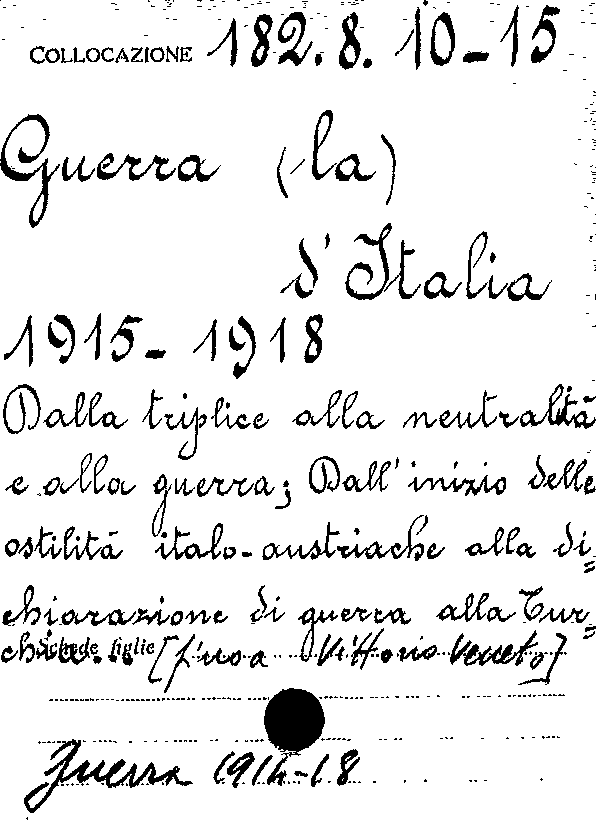 COLLOCAZIONE 182.8. 10-15
Guerra (la)
d'Italia
1915-1918
Dalla triplice alla neutralità
e alla guerra; Dall'inizio delle
ostilità italo-austriache alla di=
chiarazione di guerra alla Tur=
chia... [fino a Vittorio Veneto]
Schede figlie
Guerra 1914-18